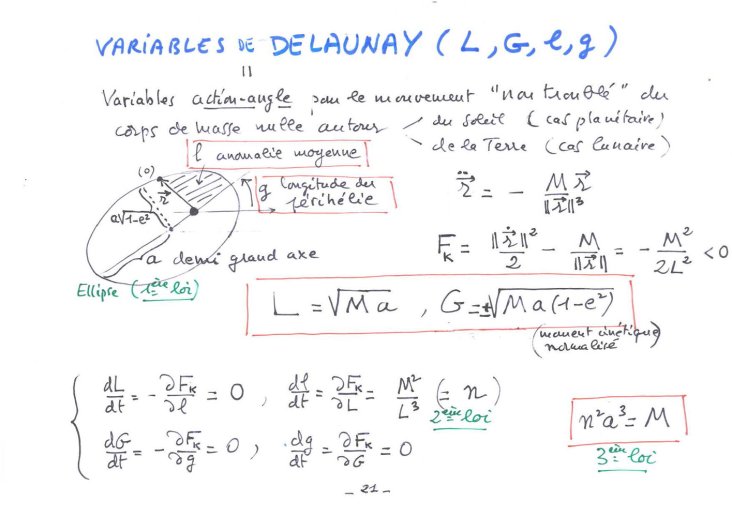 VARIABLES DE DELAUNAY (L, G, l, g)
=
Variables action-angle pour le mouvement "non troublé" du
corps de masse nulle autour
du Soleil (cas planétaire)
de la Terre (cas lunaire)
l anomalie moyenne
(0)
r⃗
g longitude du
périhélie
a√1-e²
a demi grand axe
Ellipse (1ère loi)
r̈⃗ = - M r⃗ / ||r⃗||³
F_K = ||ṙ⃗||²/2 - M/||r⃗|| = - M²/2L² < 0
L = √Ma , G = ±√Ma(1-e²)
(moment cinétique)
normalisé
dL/dt = - ∂F_K/∂l = 0 , dl/dt = ∂F_K/∂L = M²/L³ (= n)
2ème loi
dG/dt = - ∂F_K/∂g = 0 , dg/dt = ∂F_K/∂G = 0
n²a³ = M
3ème loi
- 21 -